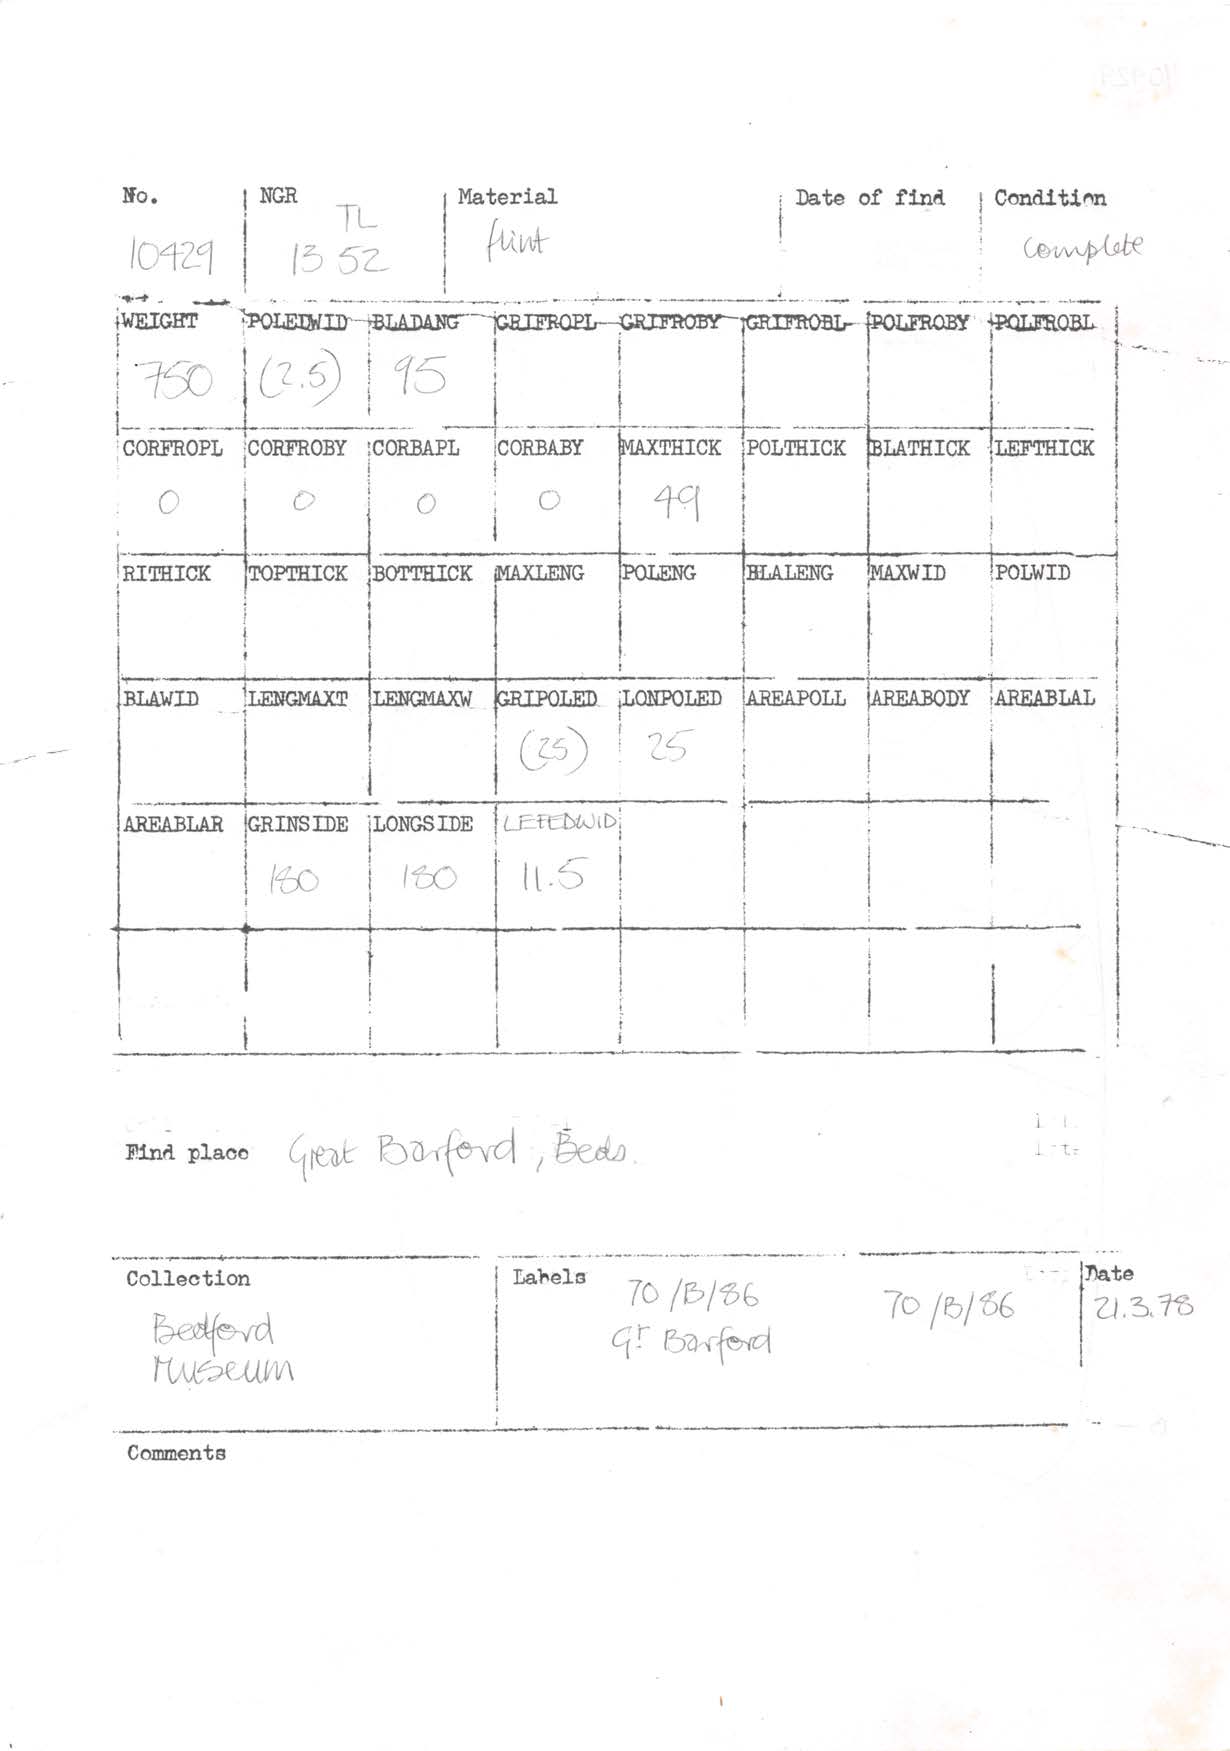 No. NGR Material Date of find Condition
TL
10429 13 52 flint complete
WEIGHT POLEDWID BLADANG GRIFROPL GRIFROBY GRIFROBL POLFROBY POLFROBL
750 (2.5) 95
CORFROPL CORFROBY CORBAPL CORBABY MAXTHICK POLTHICK BLATHICK LEFTHICK
0 0 0 0 49
RITHICK TOPTHICK BOTTHICK MAXLENG POLENG BLALENG MAXWID POLWID
BLAWID LENGMAXT LENGMAXW GRIPOLED LONPOLED AREAPOLL AREABODY AREABLAL
(25) 25
AREABLAR GRINSIDE LONGSIDE LEFEDWID
180 180 11.5
Find place Great Barford, Beds.
Collection Labels Date
70/B/86 70/B/86 21.3.78
Bedford Gr Barford
Museum
Comments